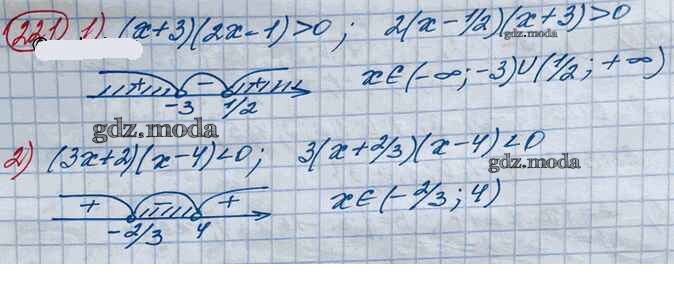 221 1) (x+3)(2x-1)>0; 2(x-1/2)(x+3)>0
gdz.moda
+ - +
-3 1/2
x∈(-∞;-3)∪(1/2;+∞)
gdz.moda
2) (3x+2)(x-4)<0; 3(x+2/3)(x-4)<0
gdz.moda
+ - +
-2/3 4
x∈(-2/3;4)